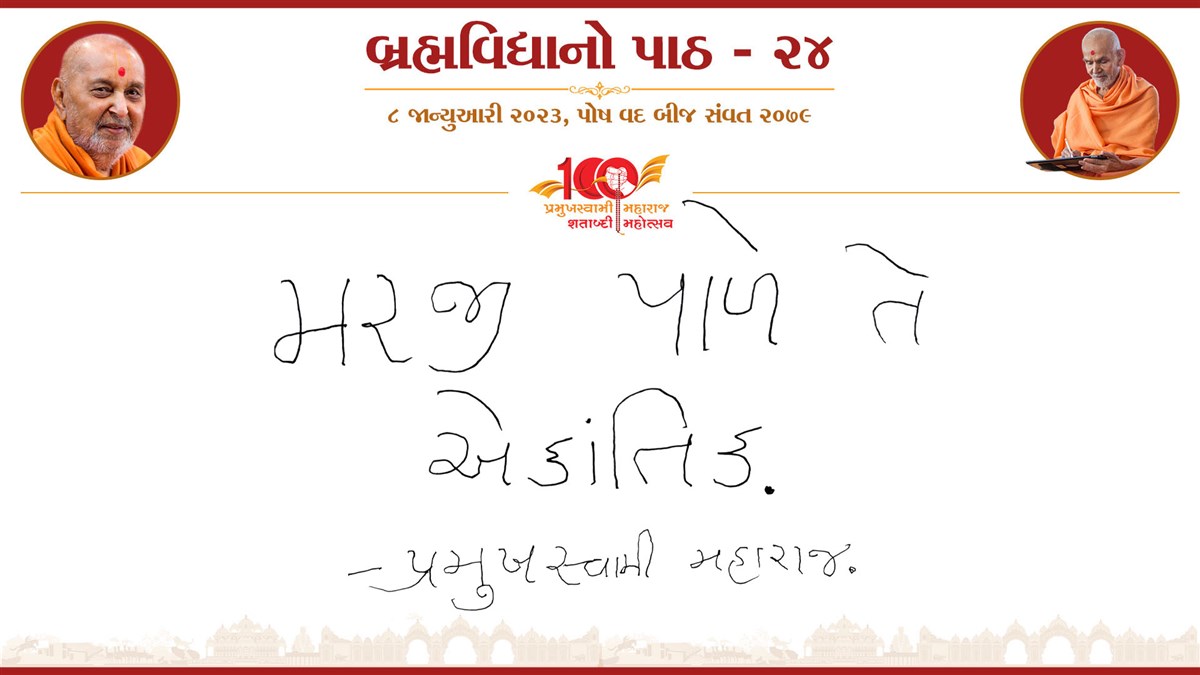 બ્રહ્મવિદ્યાનો પાઠ - ૨૪
૮ જાન્યુઆરી ૨૦૨૩, પોષ વદ બીજ સંવત ૨૦૭૯
100
પ્રમુખસ્વામી મહારાજ
શતાબ્દી મહોત્સવ
મરજી પાળે તે
એકાંતિક.
- પ્રમુખસ્વામી મહારાજ.